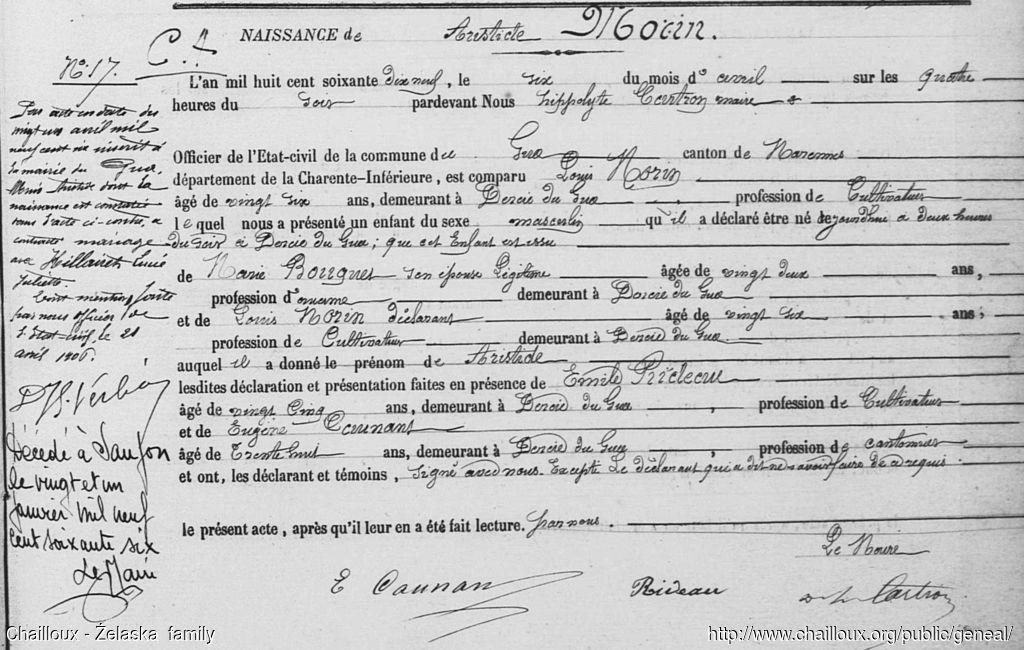 NAISSANCE de Aristide Morin.
No. 17.
L'an mil huit cent soixante dix neuf, le six du mois d' avril sur les quatre
heures du soir pardevant Nous hippolyte Cartron maire
Officier de l'Etat-civil de la commune du Gua canton de Marennes
département de la Charente-Inférieure, est comparu Louis Morin
âgé de vingt six ans, demeurant à Dercie du Gua, profession de Cultivateur
lequel nous a présenté un enfant du sexe masculin qu'il a déclaré être né aujourdhui a deux heures
du soir à Dercie du Gua; que cet Enfant est issu
de Marie Bouques son épouse Légitime âgée de vingt deux ans,
profession d' demeurant à Dercie du Gua
et de Louis Morin déclarant âgé de vingt six ans;
profession de Cultivateur demeurant à Dercie du Gua.
auquel il a donné le prénom de Aristide
lesdites déclaration et présentation faites en présence de Emile Rideau
âgé de vingt Cinq ans, demeurant à Dercie du Gua, profession de Cultivateur
et de Eugène Caunant
âgé de Trente huit ans, demeurant à Dercie du Gua, profession de cantonnier
et ont, les déclarant et témoins, signé avec nous. Excepté Le déclarant qui a dit ne savoir faire de a requis.
le présent acte, après qu'il leur en a été fait lecture. par nous.
Le Maire
E Caunan Rideau Cartron
Par acte en date du
vingt un avril mil
neuf cent six inscrit à
la mairie du Gua,
Morin Aristide dont la
naissance est constatée
dans l'acte ci-contre, a
contracté mariage
avec Hillairet Lucie
Juliette
Dont mention faite
par nous officier de
l'Etat-civil, le 21
avril 1906.
Décédé à Saujon
le vingt et un
janvier Mil neuf
cent soixante six
Le Maire
Chailloux - Żelaska family
http://www.chailloux.org/public/geneal/